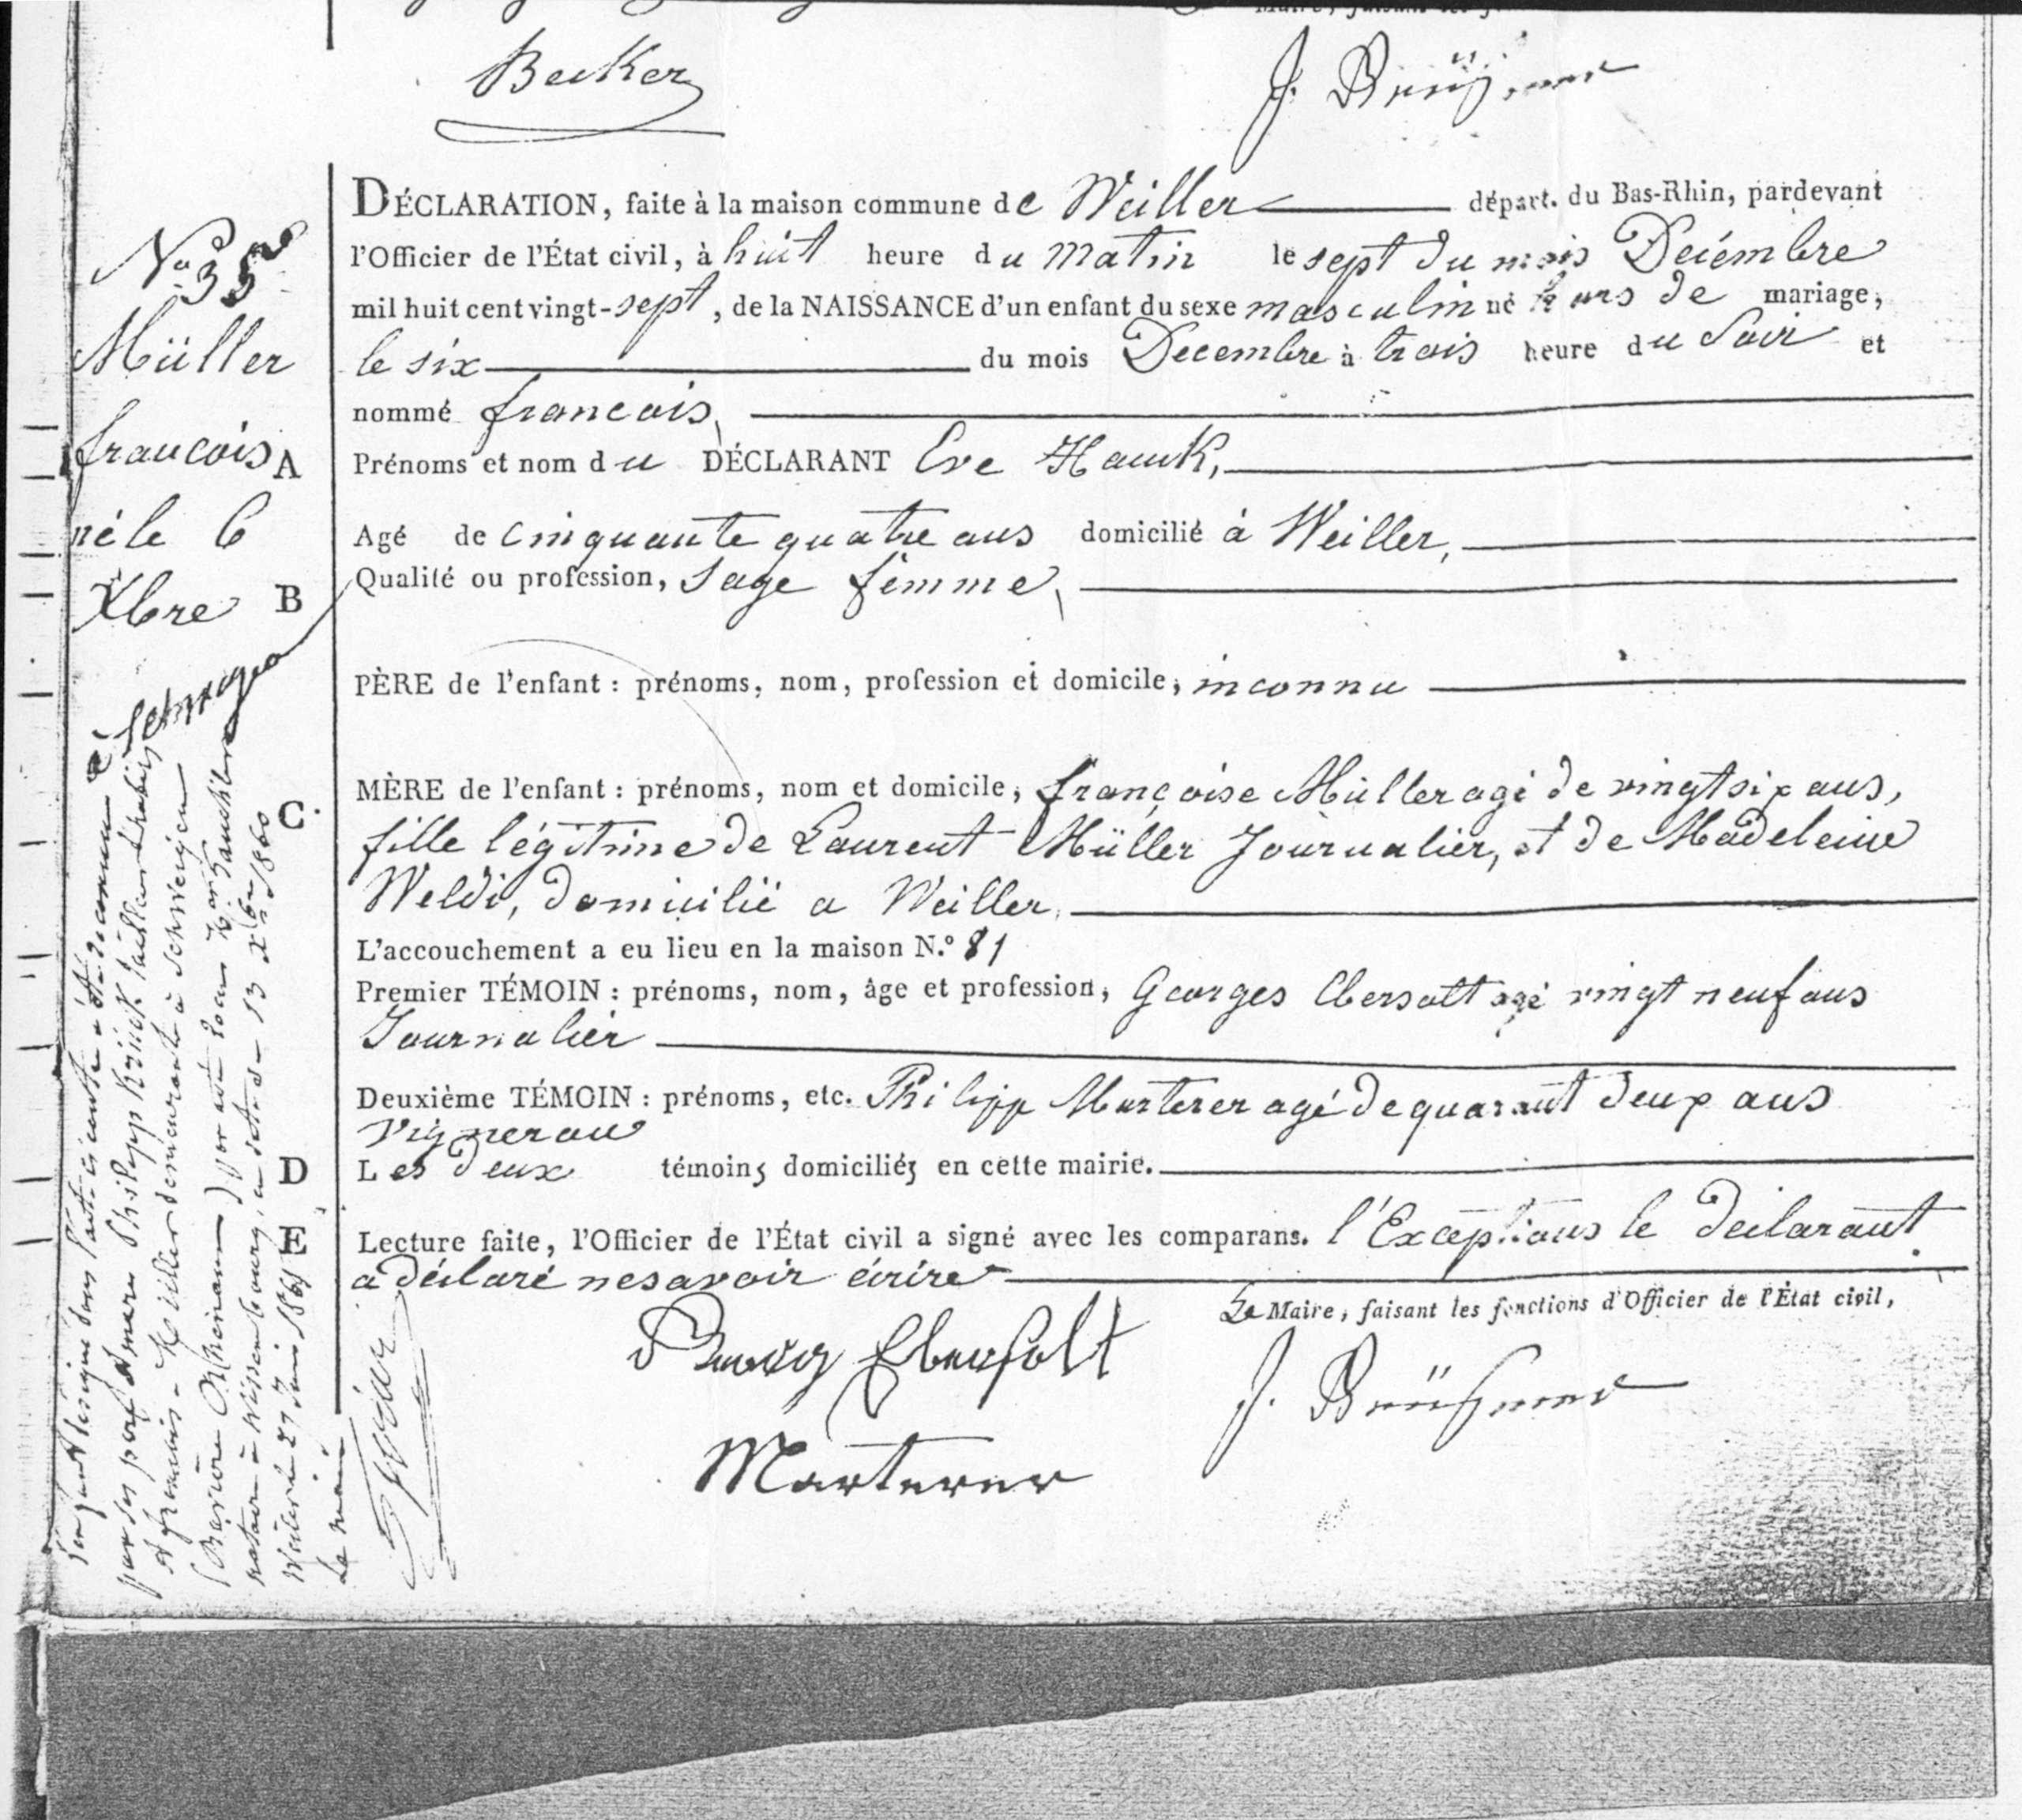 Becker
DÉCLARATION, faite à la maison commune de Weiller départ. du Bas-Rhin, pardevant
l'Officier de l'État civil, à huit heure du matin le sept du mois Decémbre
mil huit cent vingt-sept, de la NAISSANCE d'un enfant du sexe masculin né hors de mariage,
le six du mois Decembre à trois heure du Soir et
nommé francois,
Prénoms et nom du DÉCLARANT Eve Hauck,
Agé de cinquante quatre ans domicilié à Weiller,
Qualité ou profession, sage femme,
PÈRE de l'enfant : prénoms, nom, profession et domicile, inconnu
MÈRE de l'enfant : prénoms, nom et domicile, françoise Müller agé de vingt six ans,
fille légitime de Laurent Müller Journalier, et de Madeleine
Weldi, domicilié a Weiller,
L'accouchement a eu lieu en la maison N.º 81
Premier TÉMOIN : prénoms, nom, âge et profession, Georges Ebersolt agé vingt neuf ans
Journalier
Deuxième TÉMOIN : prénoms, etc. Philipp Marterer agé de quarant deux ans
Vigneron
Les deux témoins domiciliés en cette mairie.
Lecture faite, l'Officier de l'État civil a signé avec les comparans. l'Exceptions le declarant
a déclaré ne savoir écrire
Le Maire, faisant les fonctions d'Officier de l'État civil,
Georg Ebersolt
Marterer
No 35
Müller
francois
né le 6
Xbre
A
B
C
D
E
par ses père et mère Philipp
et françoise Müller demeurant à Schweigen
notaire à Wissembourg, en date du 13 Xbre 1860
27 Juin 1861
Le maire